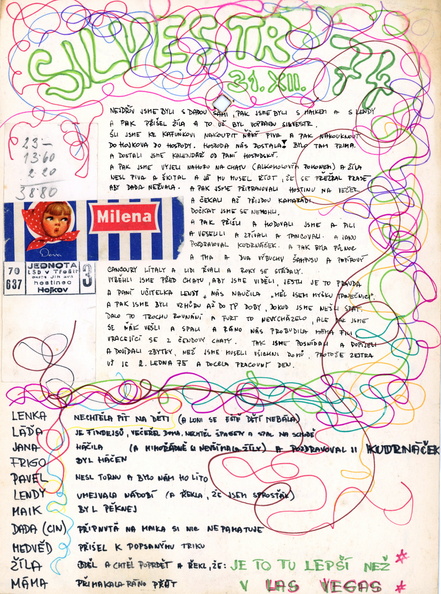 SILVESTR 74
31. XII.
NEJDŘÍV JSME BYLI S DADOU SAMI, PAK JSME BYLI S MAIKEM A S LENDY
A PAK PŘIŠEL ŽÍLA A TO UŽ BYL OPRAVDU SILVESTR.
ŠLI JSME KE KAFUŇKOVI NAKOUPIT NĚJAKÝ PIVA A PAK
DO HOJKOVA DO HOSPODY. HOSPODA NÁS DOSTALA! BYLO TAM PRIMA.
A DOSTALI JSME KALENDÁŘ OD PANÍ HOSPODSKÝ.
A PAK JSME VYJELI NAHORU NA CHATU A ŽÍLA
NESL PIVA A ŘÍDIL A JÁ MU MUSEL ŘÍCT, ŽE SE
ABY DADA NEŽVALA. A PAK JSME PŘIPRAVOVALI HOSTINU NA VEČER
A ČEKALI AŽ PŘIJDOU KAMARÁDI.
DOČKAT JSME SE NEMOHLI.
A PAK PŘIŠLI A HODOVALI JSME A PILI
A VESELILI A ZPÍVALI A TANCOVALI. A JANA
POZDRAVOVAL KUDRNÁČEK. A PAK BYLA PŮLNOC
A TMA A DVA VÝBUCHY ŠAMPUSU A PAPÍROVÝ
CANCOURY LÍTALY A LIDI ŘVALI A ROKY SE STŘÍDALY.
VYBĚHLI JSME PŘED CHATU, ABY JSME VIDĚLI, JESTLI JE TO PRAVDA
A PANÍ UČITELKA LENDY, NÁS NAUČILA „MĚL JSEM MYŠKU TANEČNICI".
A PAK JSME BYLI VZHŮRU AŽ DO TÝ DOBY, DOKUD JSME NEŠLI SPÁT.
DALO TO TROCHU ROVNÁNÍ A FURT TO NEVYCHÁZELO, ALE PAK JSME
SE ŇÁK VEŠLI A SPALI A RÁNO NÁS PROBUDILA MÁMA
VRACEJÍCÍ SE Z ČENDOVY CHATY. TAK JSME POSNÍDALI A DOPILI
A DOJÍDALI ZBYTKY, NEŽ JSME MUSELI VŠICHNI DOMŮ, PROTOŽE ZEJTRA
UŽ JE 2. LEDNA 75 A DOCELA PRACOVNÍ DEN.
23-
13.60
2.20
38.80
Milena
70
637
JEDNOTA
LSD v Třešti
hostinec
Hojkov
3
LENKA NECHTĚLA PÍT NA DĚTI (A LONI SE EŠTĚ DĚTÍ NEBÁLA)
LÁĎA JE TINDEJŠŮ, VEČEŘEL DOMA, NECHTĚL ŠPAGETY A SPAL NA SCHODĚ
JANA HÁČILA (A MIMOŘÁDNĚ SI NEVŠÍMALA ŽÍLY) A POZDRAVOVAL JI KUDRNÁČEK
FRIGO BYL HÁČEN
PAVEL NESL TORNU A BYLO NÁM HO LÍTO
LENDY UMEJVALA NÁDOBÍ (A ŘEKLA, ŽE JSEM SPROSŤÁK)
MAIK BYL PĚKNEJ
DADA (CIN) PŘIPNUTÁ NA MAIKA SI NIC NEPAMATUJE
MEDVĚD PŘIŠEL K POPSANÝMU TRIKU
ŽÍLA BDĚL A CHTĚL POPRDĚT A ŘEKL, ŽE: JE TO TU LEPŠÍ NEŽ
V LAS VEGAS
MÁMA PŘIMAKALA RÁNO PŘÁT